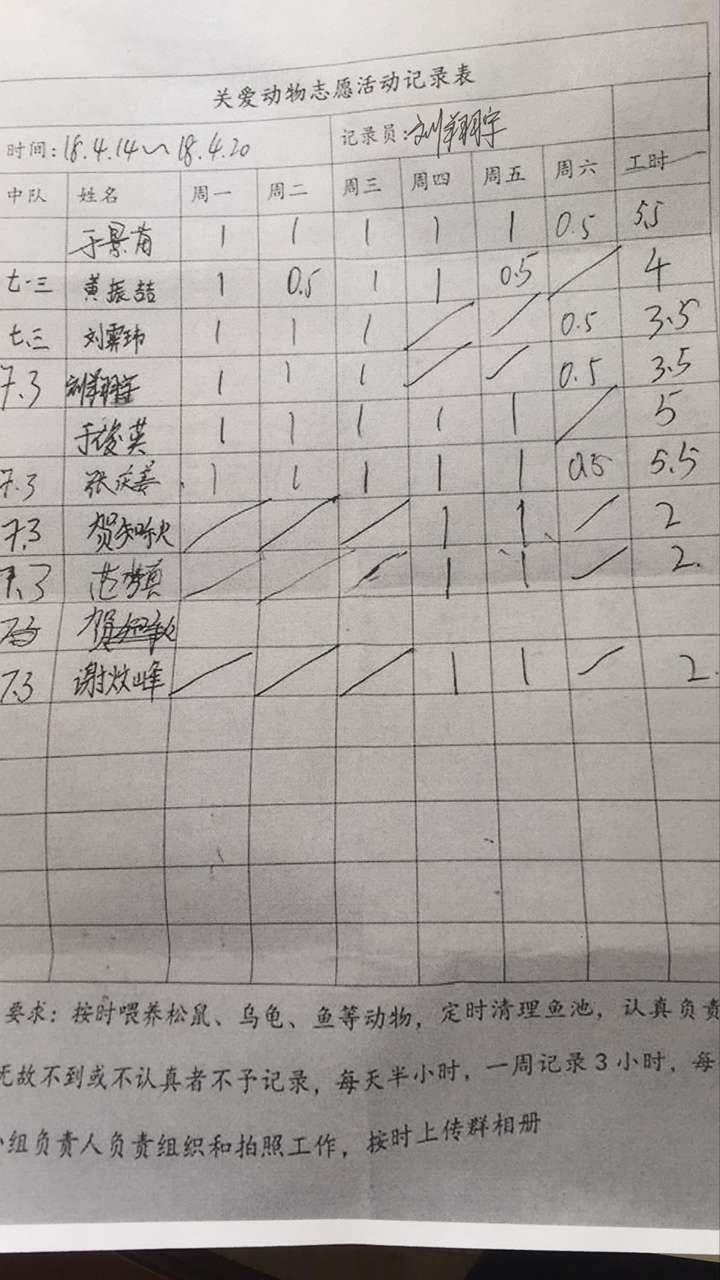 关爱动物志愿活动记录表
时间:18.4.14~18.4.20 记录员:刘翔宇
中队 姓名 周一 周二 周三 周四 周五 周六 工时
于景 1 1 1 1 1 0.5 5.5
七.三 黄振喆 1 0.5 1 1 0.5 / 4
七.三 刘霁玮 1 1 1 / / 0.5 3.5
7.3 刘翔宇 1 1 1 / / 0.5 3.5
于俊英 1 1 1 1 1 / 5
7.3 张庆姜 1 1 1 1 1 0.5 5.5
7.3 贺知秋 / / / 1 1 / 2
7.3 范 / / / 1 1 / 2.
7.3 谢峰 / / / 1 1 / 2.
要求:按时喂养松鼠、乌龟、鱼等动物,定时清理鱼池,认真负责
无故不到或不认真者不予记录,每天半小时,一周记录3小时,每
小组负责人负责组织和拍照工作,按时上传群相册